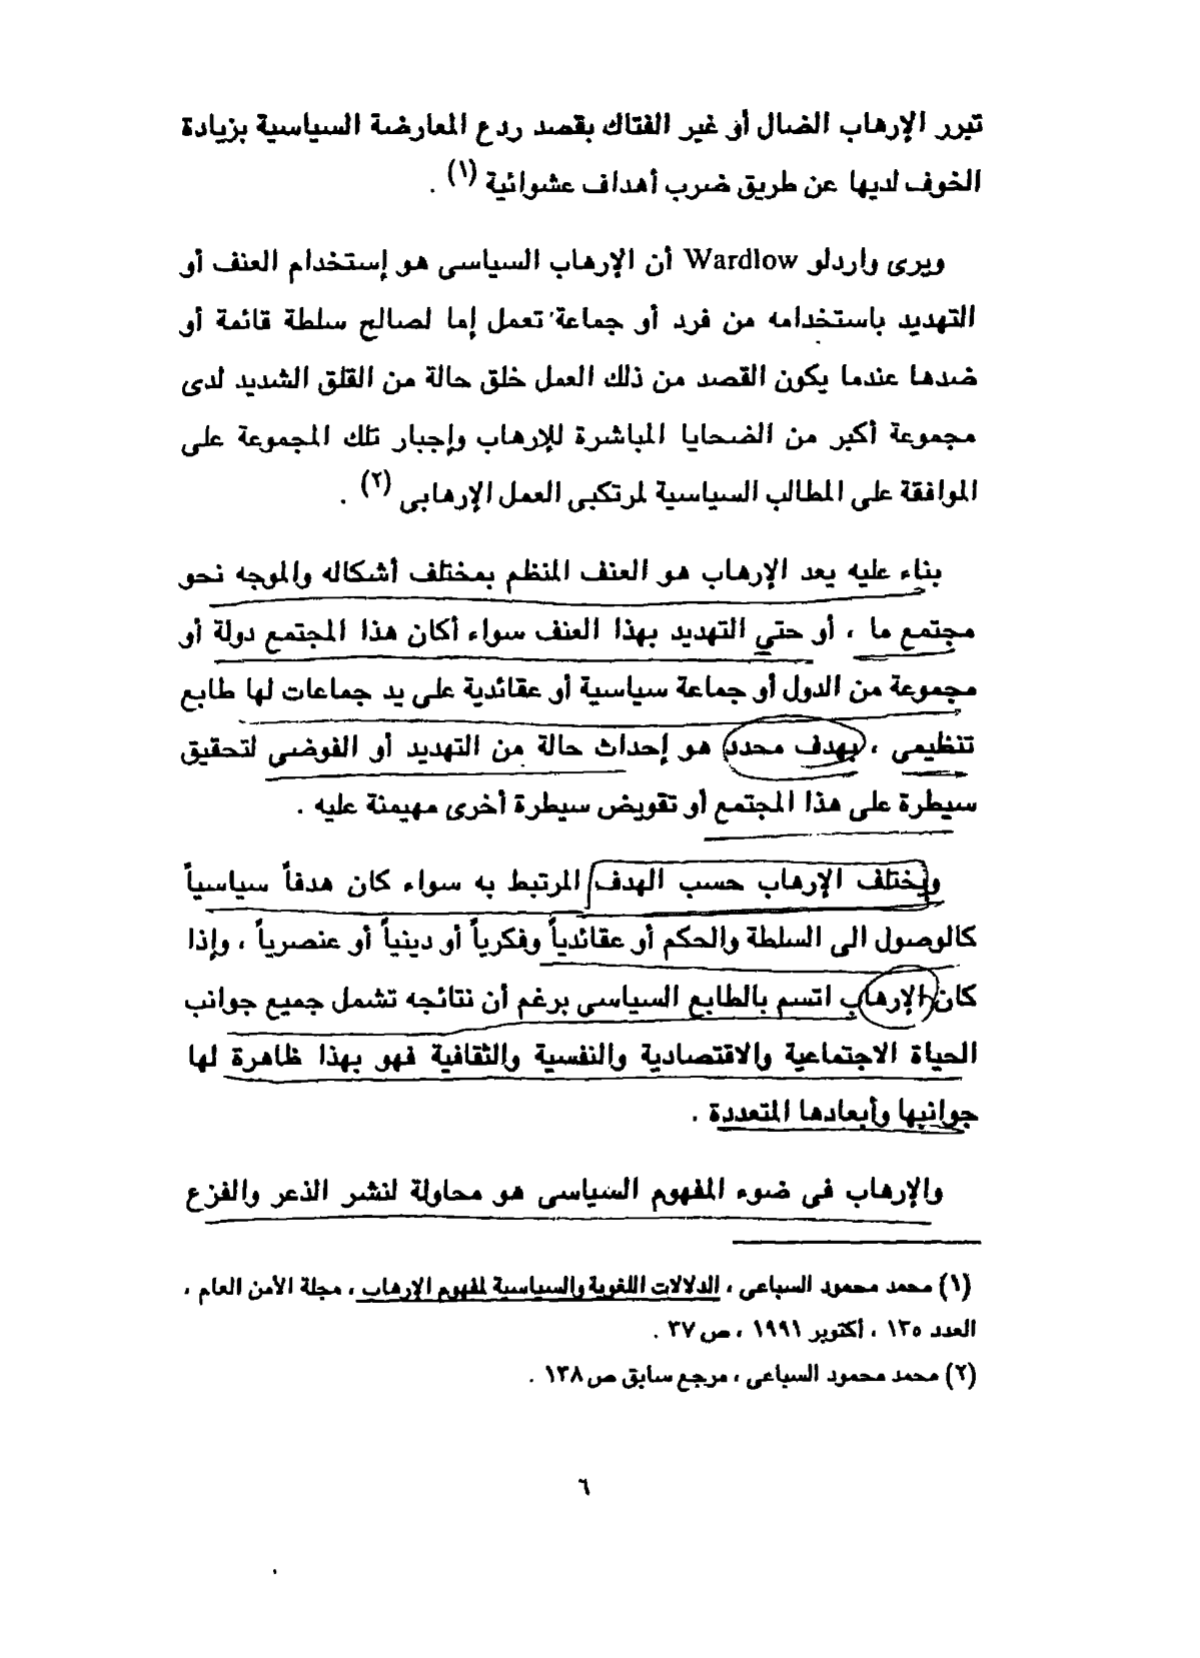 تبرر الإرهاب الضال أو غير الفتاك بقصد ردع المعارضة السياسية بزيادة
الخوف لديها عن طريق ضرب أهداف عشوائية (١) .
ويرى واردلو Wardlow أن الإرهاب السياسى هو إستخدام العنف أو
التهديد باستخدامه من فرد أو جماعة تعمل إما لصالح سلطة قائمة أو
ضدها عندما يكون القصد من ذلك العمل خلق حالة من القلق الشديد لدى
مجموعة أكبر من الضحايا المباشرة للإرهاب وإجبار تلك المجموعة على
الموافقة على المطالب السياسية لمرتكبى العمل الإرهابى (٢) .
بناء عليه يعد الإرهاب هو العنف المنظم بمختلف أشكاله والموجه نحو
مجتمع ما ، أو حتي التهديد بهذا العنف سواء أكان هذا المجتمع دولة أو
مجموعة من الدول أو جماعة سياسية أو عقائدية على يد جماعات لها طابع
تنظيمى ، بهدف محدد هو إحداث حالة من التهديد أو الفوضى لتحقيق
سيطرة على هذا المجتمع أو تقويض سيطرة أخرى مهيمنة عليه .
ويختلف الإرهاب حسب الهدف المرتبط به سواء كان هدفاً سياسياً
كالوصول الى السلطة والحكم أو عقائدياً وفكرياً أو دينياً أو عنصرياً ، وإذا
كان الإرهاب اتسم بالطابع السياسى برغم أن نتائجه تشمل جميع جوانب
الحياة الاجتماعية والاقتصادية والنفسية والثقافية فهو بهذا ظاهرة لها
جوانبها وأبعادها المتعددة .
والإرهاب فى ضوء المفهوم السياسى هو محاولة لنشر الذعر والفزع
(١) محمد محمود السباعى ، الدلالات اللغوية والسياسية لمفهوم الإرهاب ، مجلة الأمن العام ،
العدد ١٣٥ ، أكتوبر ١٩٩١ ، ص ٣٧ .
(٢) محمد محمود السباعى ، مرجع سابق ص ١٣٨ .
٦